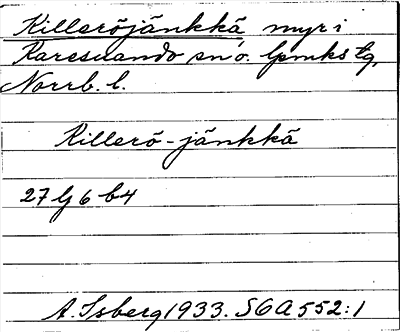 Killeröjänkkä myr i
Karesuando sn o. lpmks tg,
Norrb. l.
Killerö-jänkkä
27 G 6 b4
A. Isberg 1933. SGA 552:1